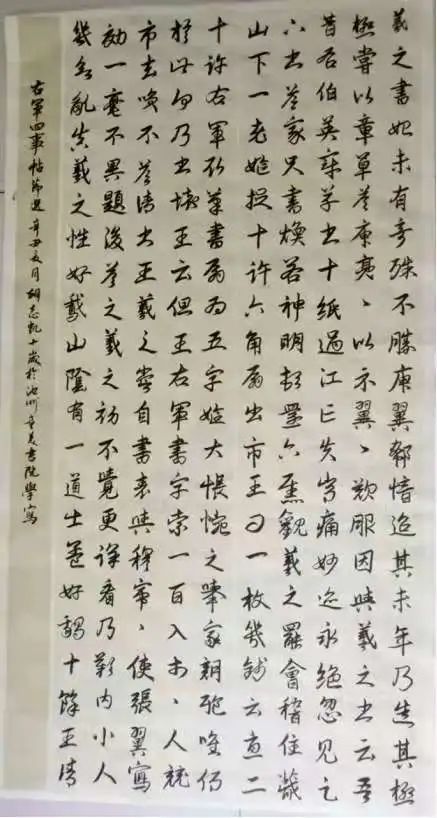 羲之書始未有奇殊不勝庾翼郗愔迨其末年乃造其極
極嘗以章草答庾亮、以示翼、歎服因與羲之書云吾
昔有伯英章草書十紙過江亡失常痛妙迹永絕忽見足
下書答家兄書煥若神明頓還舊觀羲之罷會稽住蕺
山下一老嫗捉十許六角扇出市王曰一枚幾錢云直二
十許右軍取筆書扇為五字嫗大悵惋之舉家朝飱唯仰
於此何乃書壞王云但王右軍書字索一百入市、人競
市去不答請書王羲之嘗自書表與穆帝、使張翼寫
効一毫不異題後答之羲之初不覺更詳看乃歎小人
幾欲亂真羲之性好鵝山陰有一道士養好鵝十餘王清
右軍四事帖節選辛丑夏月胡志凱十歲於池州美書院學寫